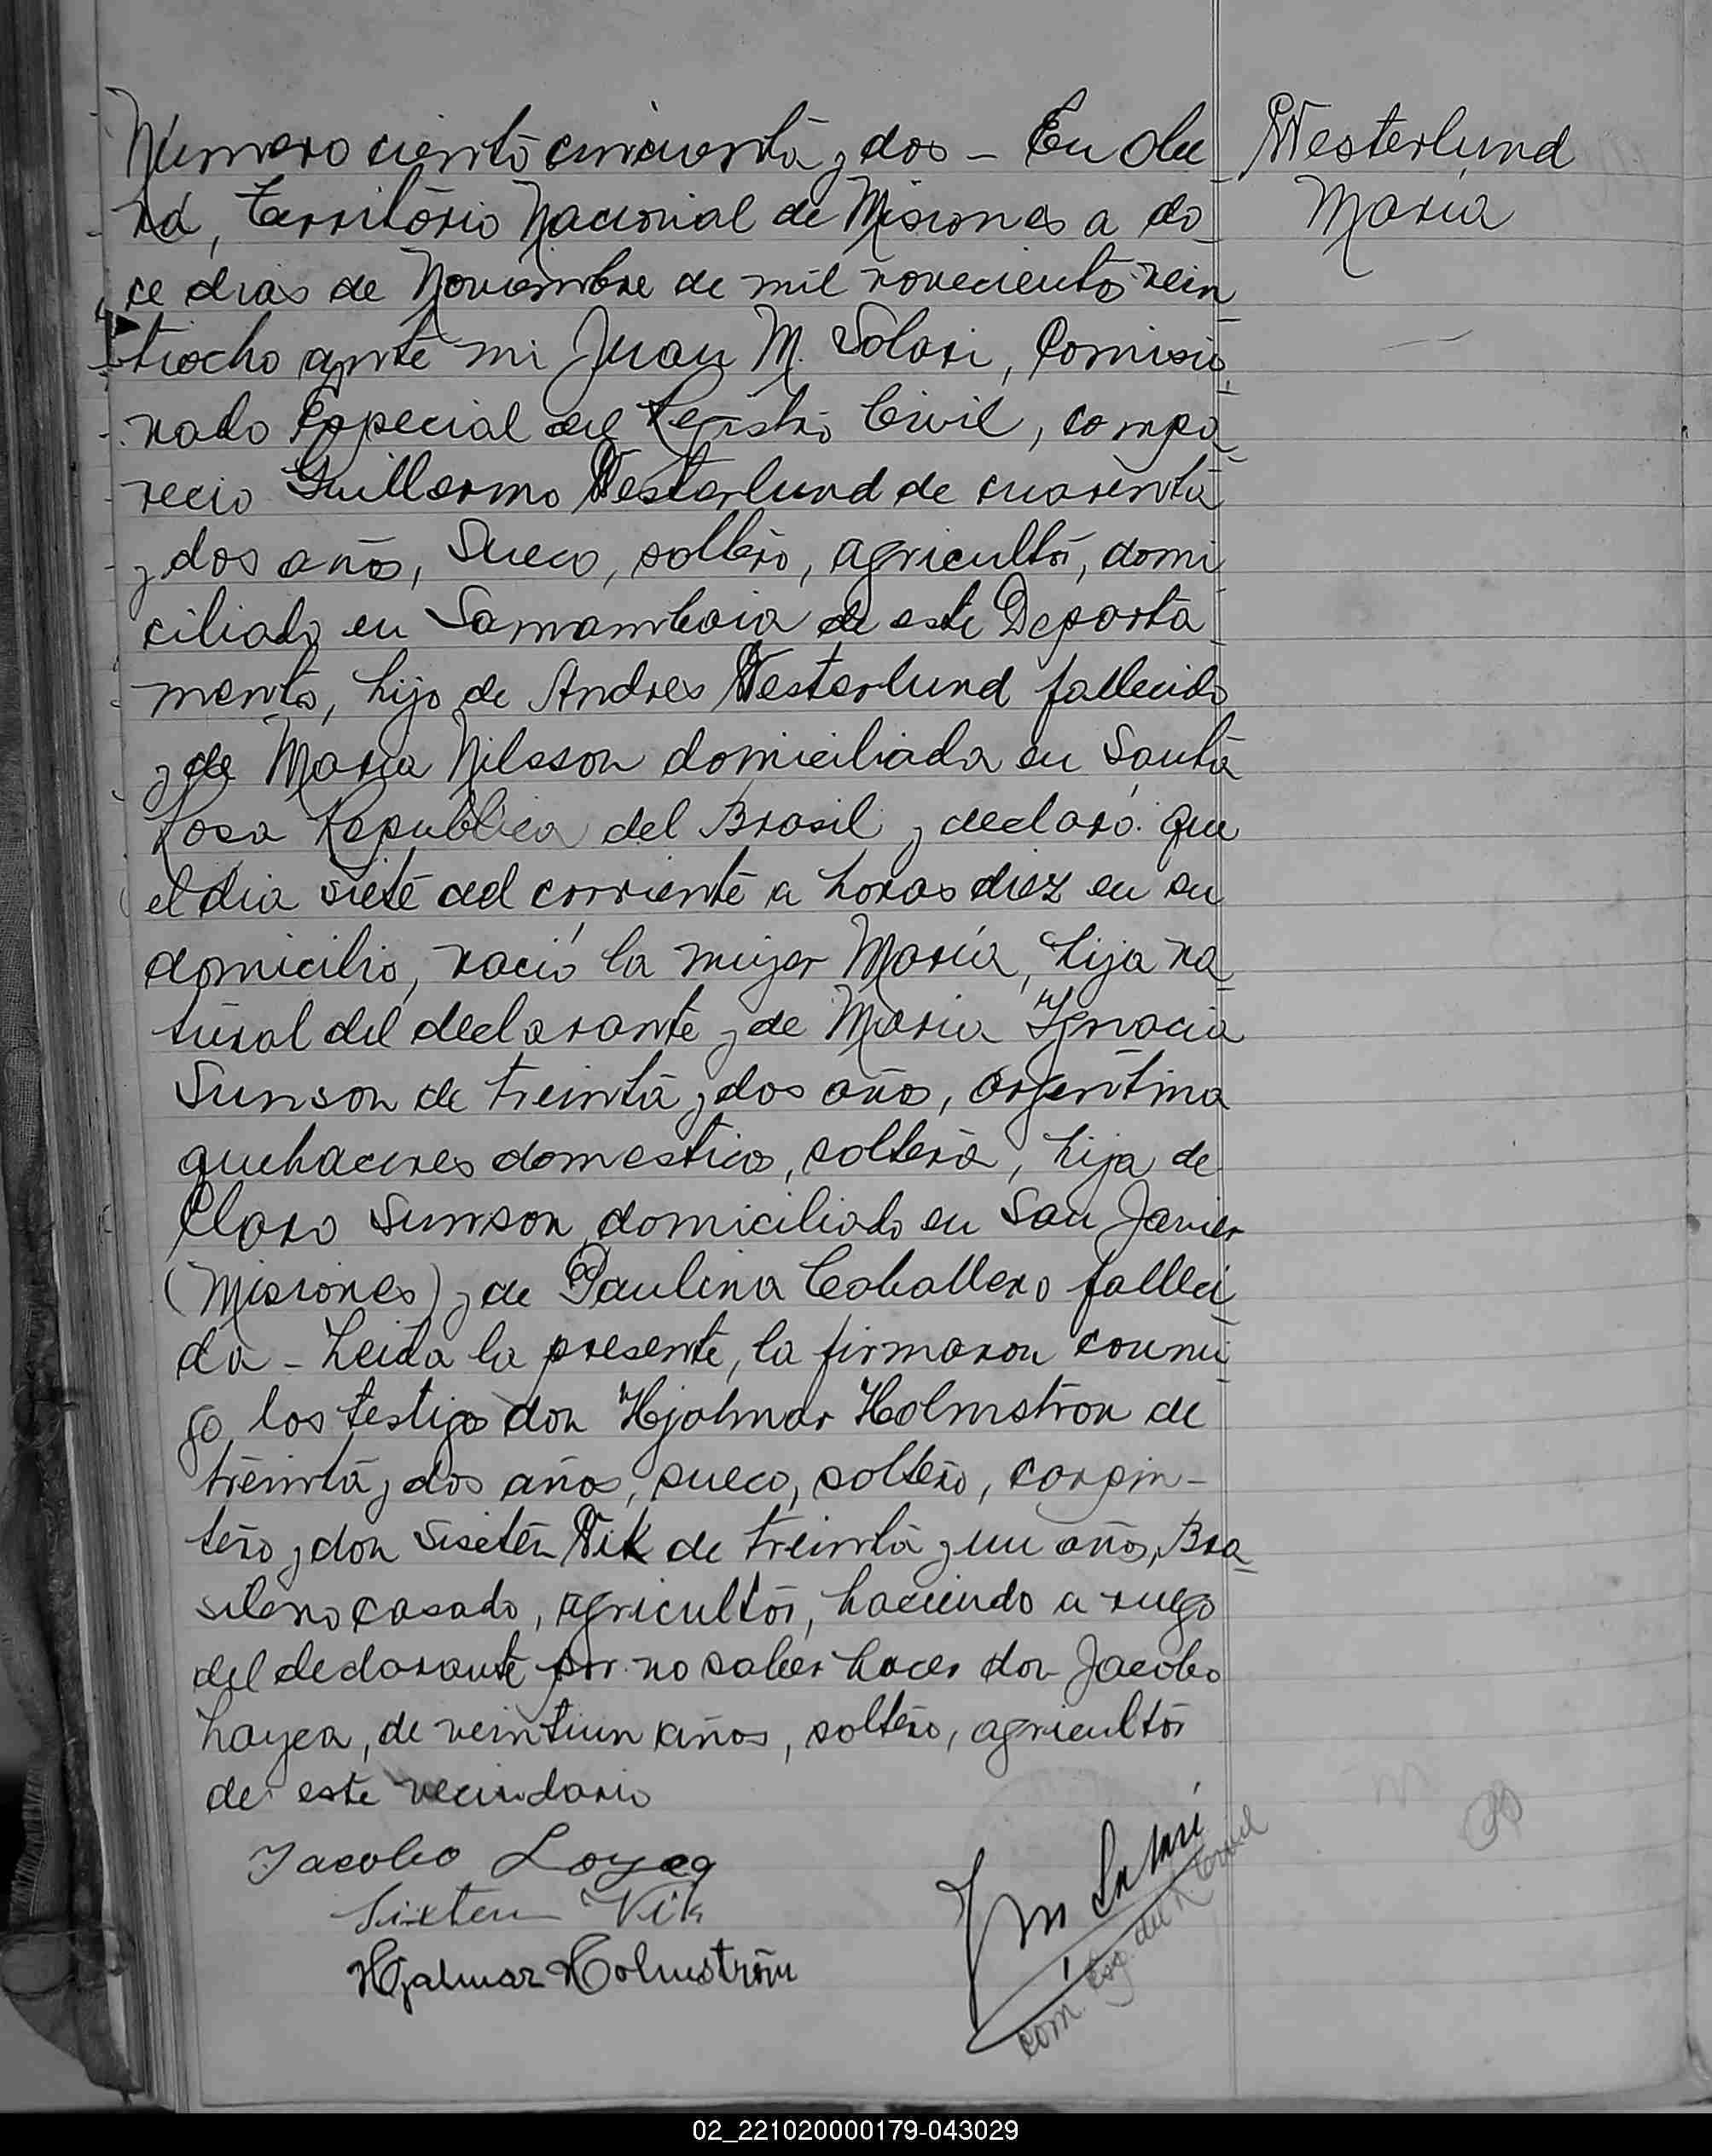 Numero ciento cincuenta y dos – En Obe
Westerlund
María
rá, territorio Nacional de Misiones a do
ce dias de Noviembre de mil novecientos vein
tiocho ante mi Juan M. Solari, Comisio
nado Especial del Registro Civil, compa
recio Guillermo Westerlund de cuarenta
y dos años, Sueco, soltero, agricultor, domi
ciliado en Samambaia de este Departa
mento, hijo de Andres Westerlund fallecido
y de Maria Nilsson domiciliada en Santa
Rosa Republica del Brasil y declaró: que
el dia siete del corriente a horas diez en su
domicilio, nació la mujer María, hija na
tural del declarante y de Maria Ignacia
Sunson de treinta y dos años, argentina
quehaceres domesticos, soltera, hija de
Claro Sunson domiciliado en San Javier
(Misiones) y de Paulina Caballero falleci
da – Leida la presente, la firmaron conmi
go los testigos don Hjalmar Holmstron de
treinta y dos años, sueco, soltero, carpin–
tero y don Sixten Vik de treinta y un años, Bra
sileno casado, agricultor, haciendo a ruego
del declarante por no saber hacer don Jacobo
Loyea, de veintiun años, soltero, agricultor
de este vecindario
Jacobo Loyea
Sixten Vik
Hjalmar Holmström
J M Solari
Com. Esp. del R. Civil
02_221020000179-043029